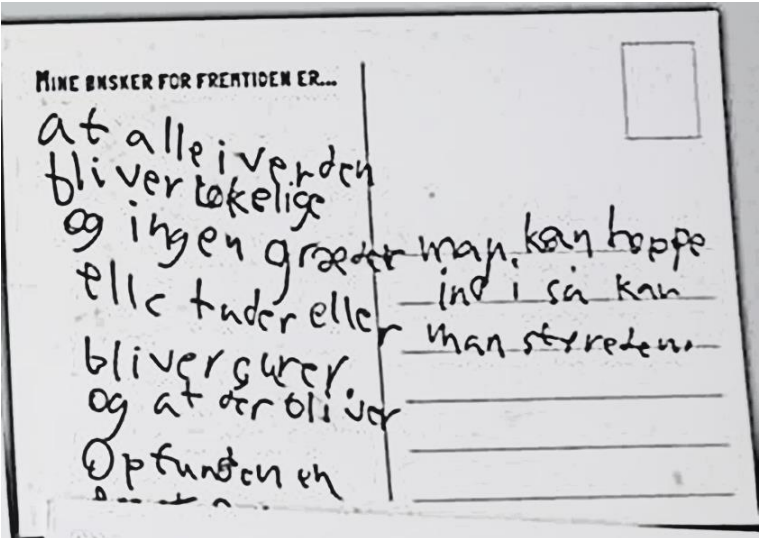 MINE ØNSKER FOR FREMTIDEN ER...
at alle i verden
bliver løkelige
og ingen græder
elle tuder eller
bliver surer
og at der bliver
Opfunden en
man kan hoppe
ind i så kan
man styreden.